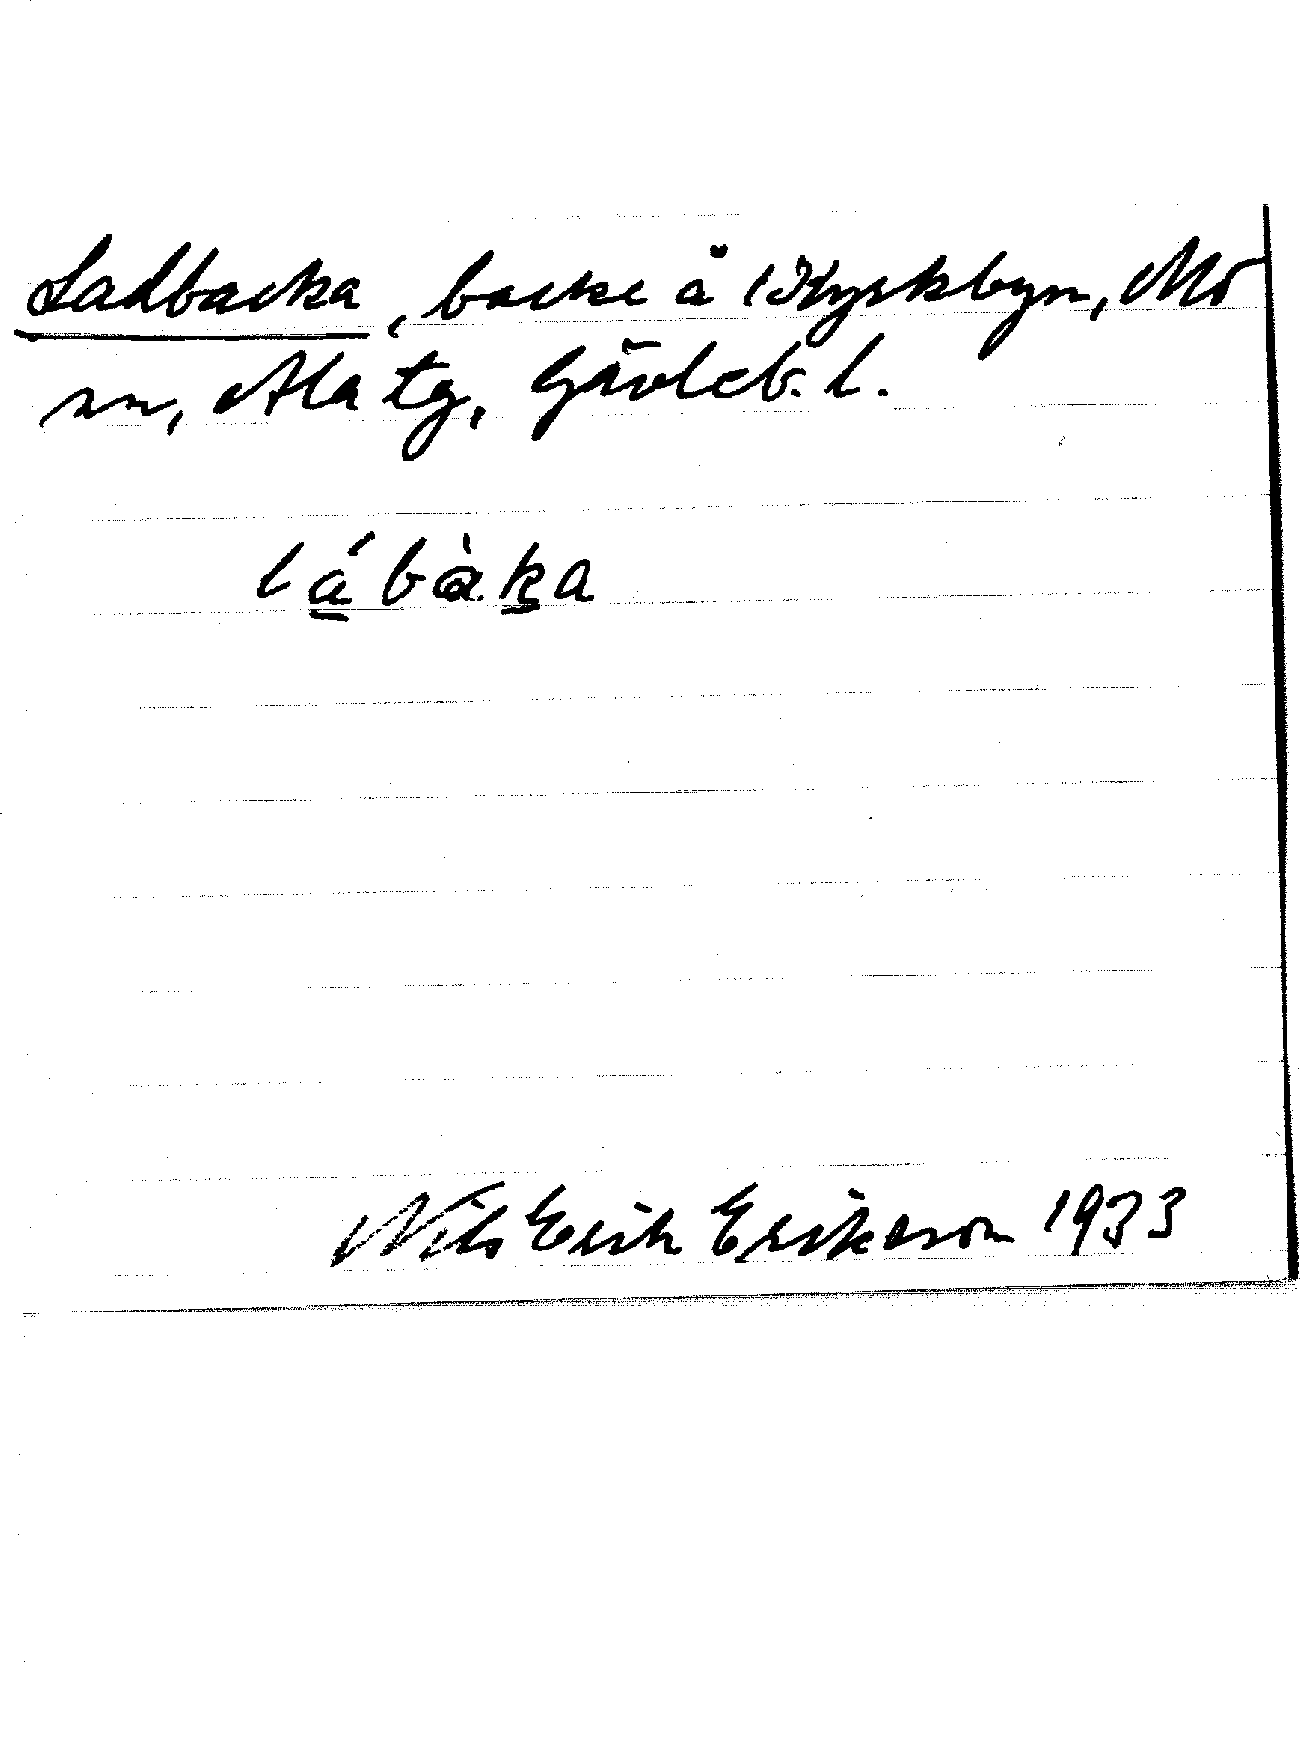 Ladbacka, backe å Kyrkbyn, Mo
sn, Ala tg, Gävleb. l.
lábàka
Nils Erik Erikeson 1933